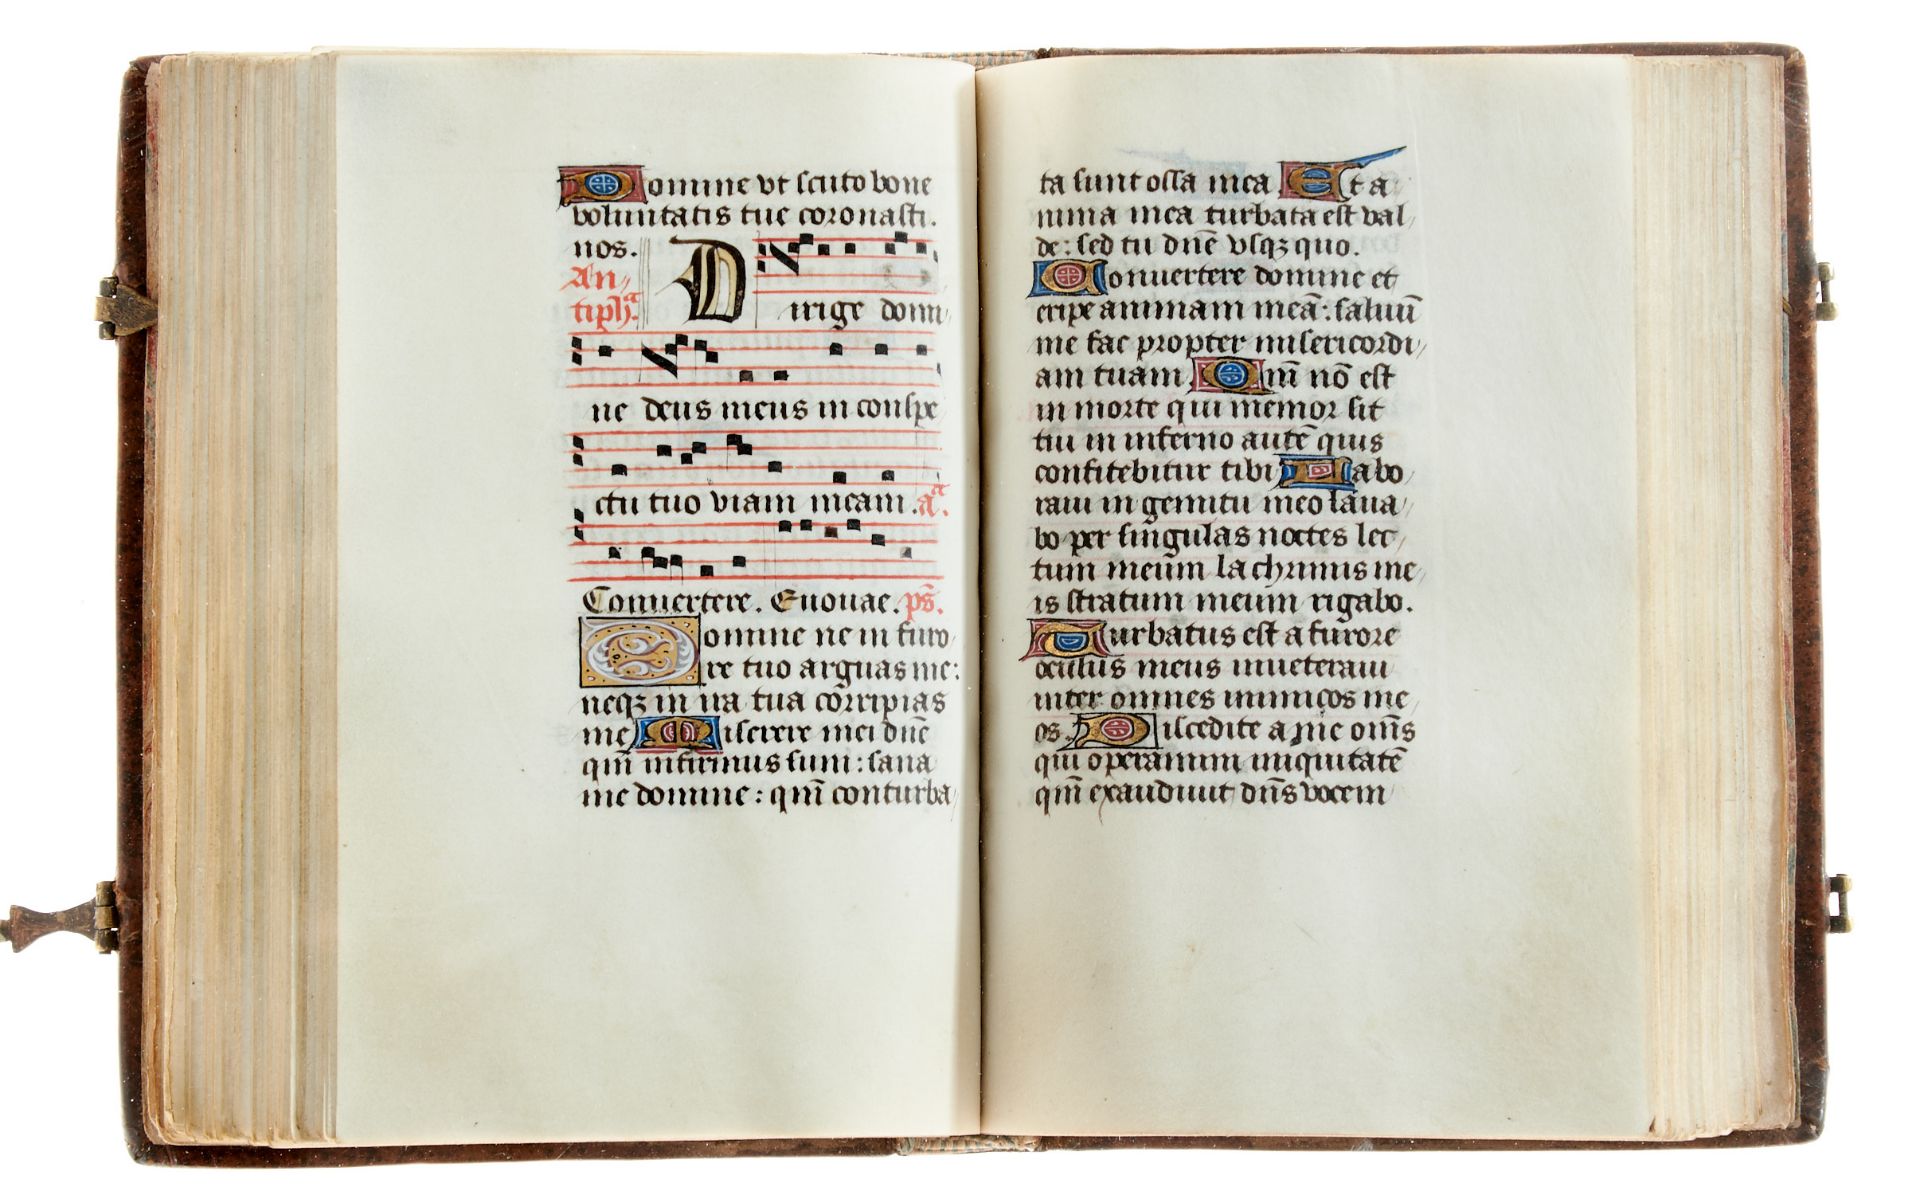 Domine vt scuto bone
voluntatis tue coronasti
nos.
An-
tiph͞a.
Dirige domi,
ne deus meus in conspe
ctu tuo viam meam. a͞a.
Conuertere. Euouae. ps̄.
Domine ne in furo,
re tuo arguas me:
neqꝫ in ira tua corripias
me Miserere mei dn̄e
qm̄ infirmus sum: sana
me domine: qm̄ conturba,
ta sunt ossa mea Et a
nima mea turbata est val,
de: sed tu dn̄e vsqꝫ quo.
Conuertere domine et
eripe animam meā: saluū
me fac propter misericordi,
am tuam Qm̄ nō est
in morte qui memor sit
tui in inferno autē quis
confitebitur tibi Labo,
raui in gemitu meo laua,
bo per singulas noctes lec,
tum meum lachrimis me,
is stratum meum rigabo.
Turbatus est a furore
oculus meus inueteraui
inter omnes inimicos me,
os. Discedite a me om̄s
qui operamini iniquitatē
qm̄ exaudiuit dn̄s vocem